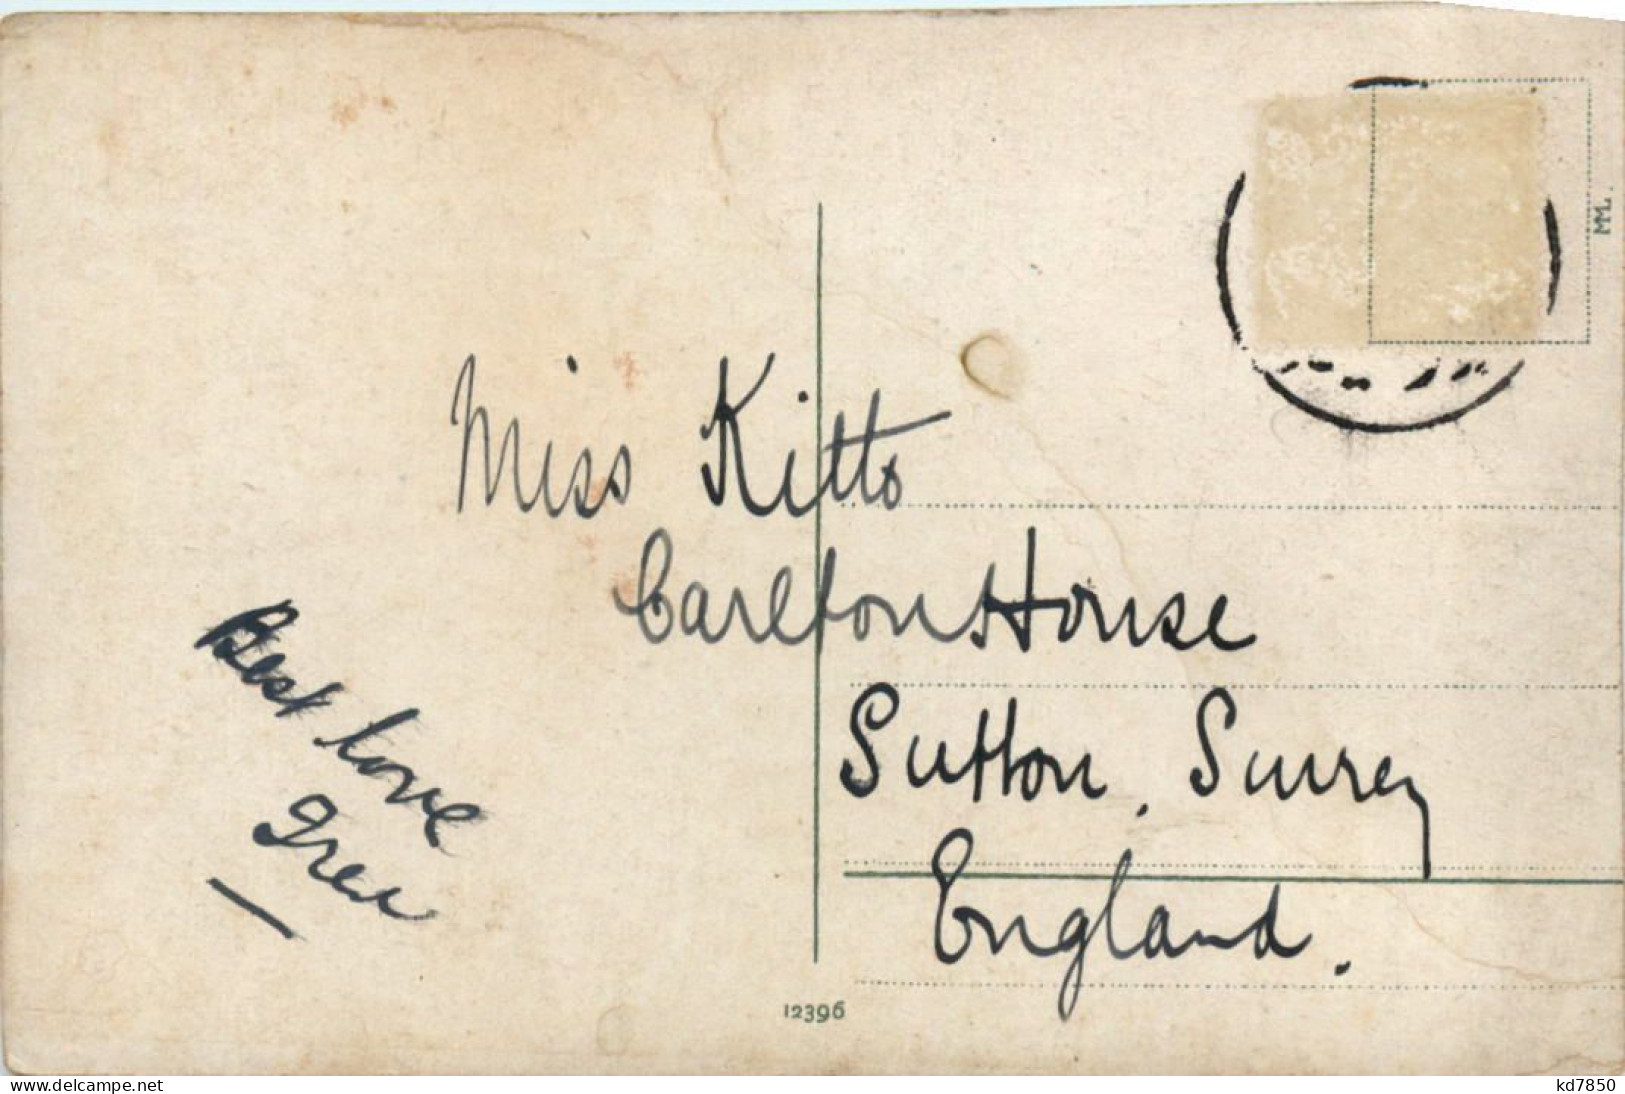 Miss Kitto
Carlton House
Sutton, Surrey
England.
Best love
12396
MM.
www.delcampe.net
kd7850